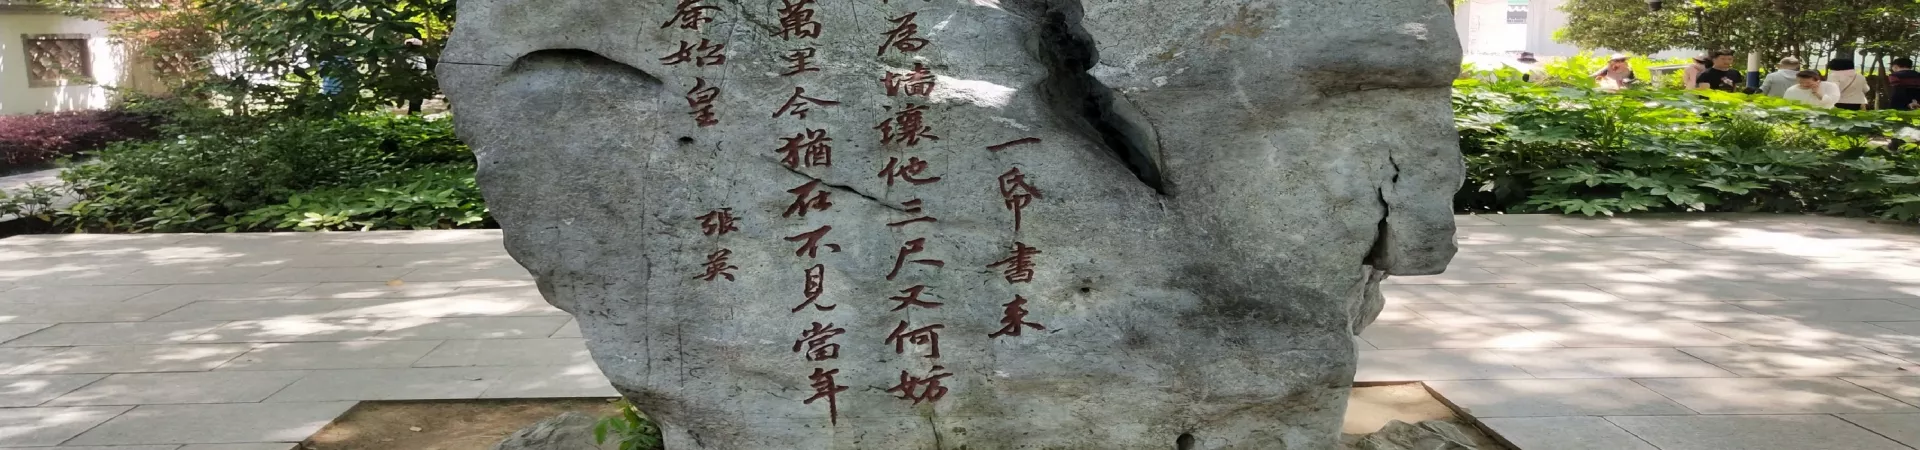 一帋書来
為墙讓他三尺又何妨
萬里今猶在不見當年
秦始皇
張英